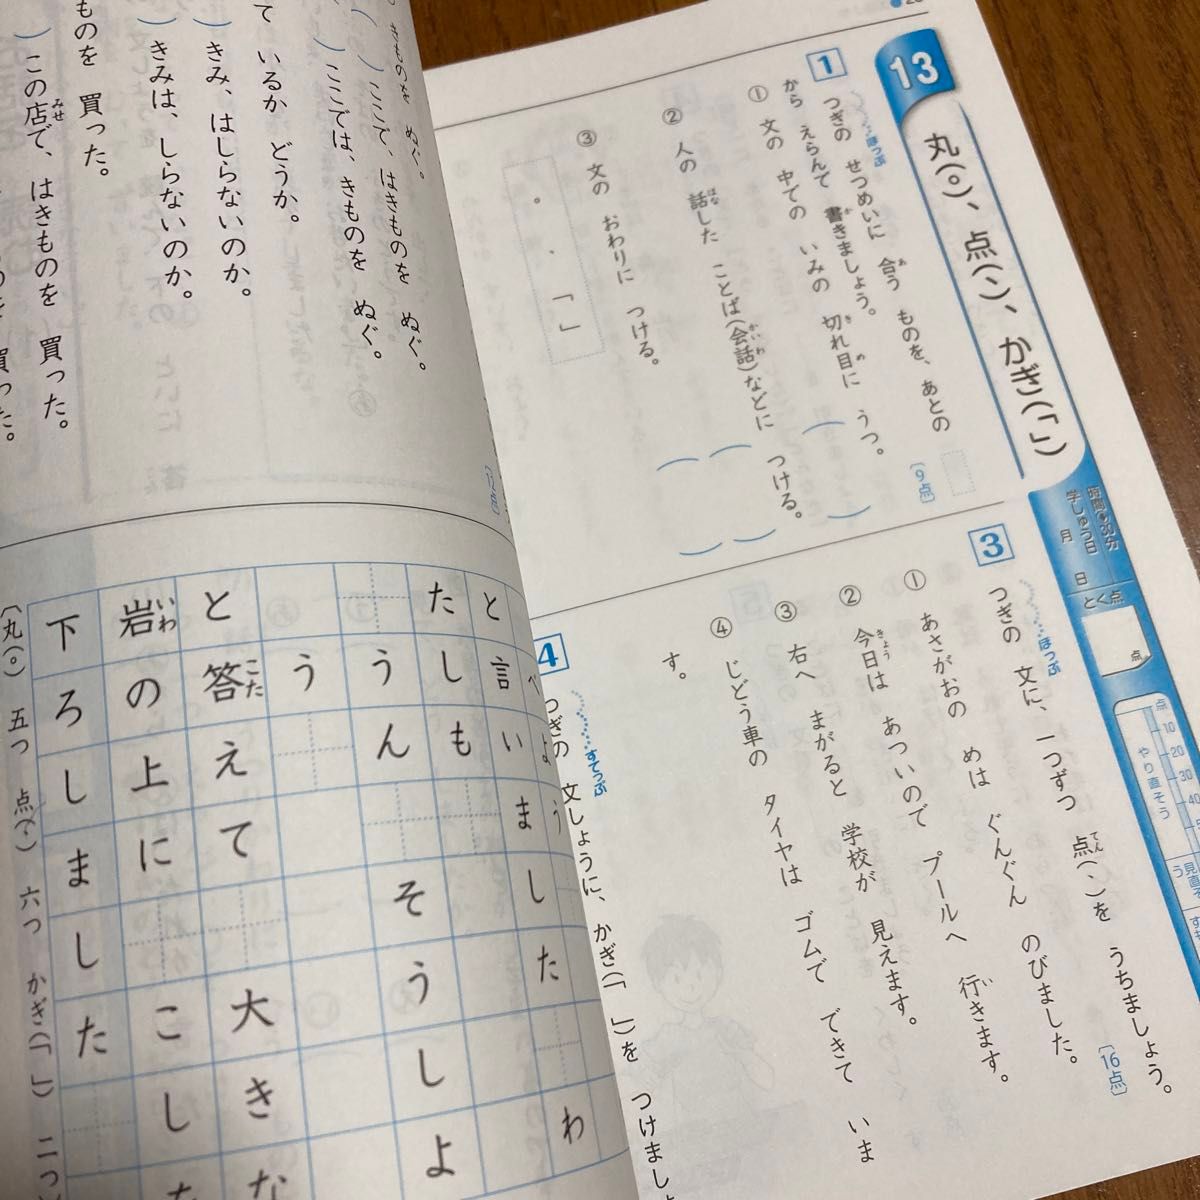 13
丸(。)、点(、)、かぎ(「」)
時間●30分
学しゅう日
月
日
とく点
点
点
10
20
30
40
やり直そう
1
ほっぷ
つぎの せつめいに 合う ものを、あとの
から えらんで 書きましょう。
〔9点〕
① 文の 中での いみの 切れ目に うつ。
② 人の 話した ことば(会話)などに つける。
③ 文の おわりに つける。
。 、 「」
3
ほっぷ
つぎの 文に、一つずつ 点(、)を うちましょう。
〔16点〕
① あさがおの めは ぐんぐん のびました。
② 今日は あついので プールへ 行きます。
③ 右へ まがると 学校が 見えます。
④ じどう車の タイヤは ゴムで できて いま
す。
4
すてっぷ
つぎの 文しょうに、かぎ(「 」)を つけましょ
きものを ぬぐ。
( )ここで、はきものを ぬぐ。
( )ここでは、きものを ぬぐ。
て いるか どうか。
( )きみ、はしらないのか。
( )きみは、しらないのか。
ものを 買った。
( )この店で、はきものを 買った。
わ
と言いました
たしも
うんそうしよ
う
と答えて大きな
岩の上にこした
下ろしました
〔丸(。) 五つ 点(、) 六つ かぎ(「」) 二つ